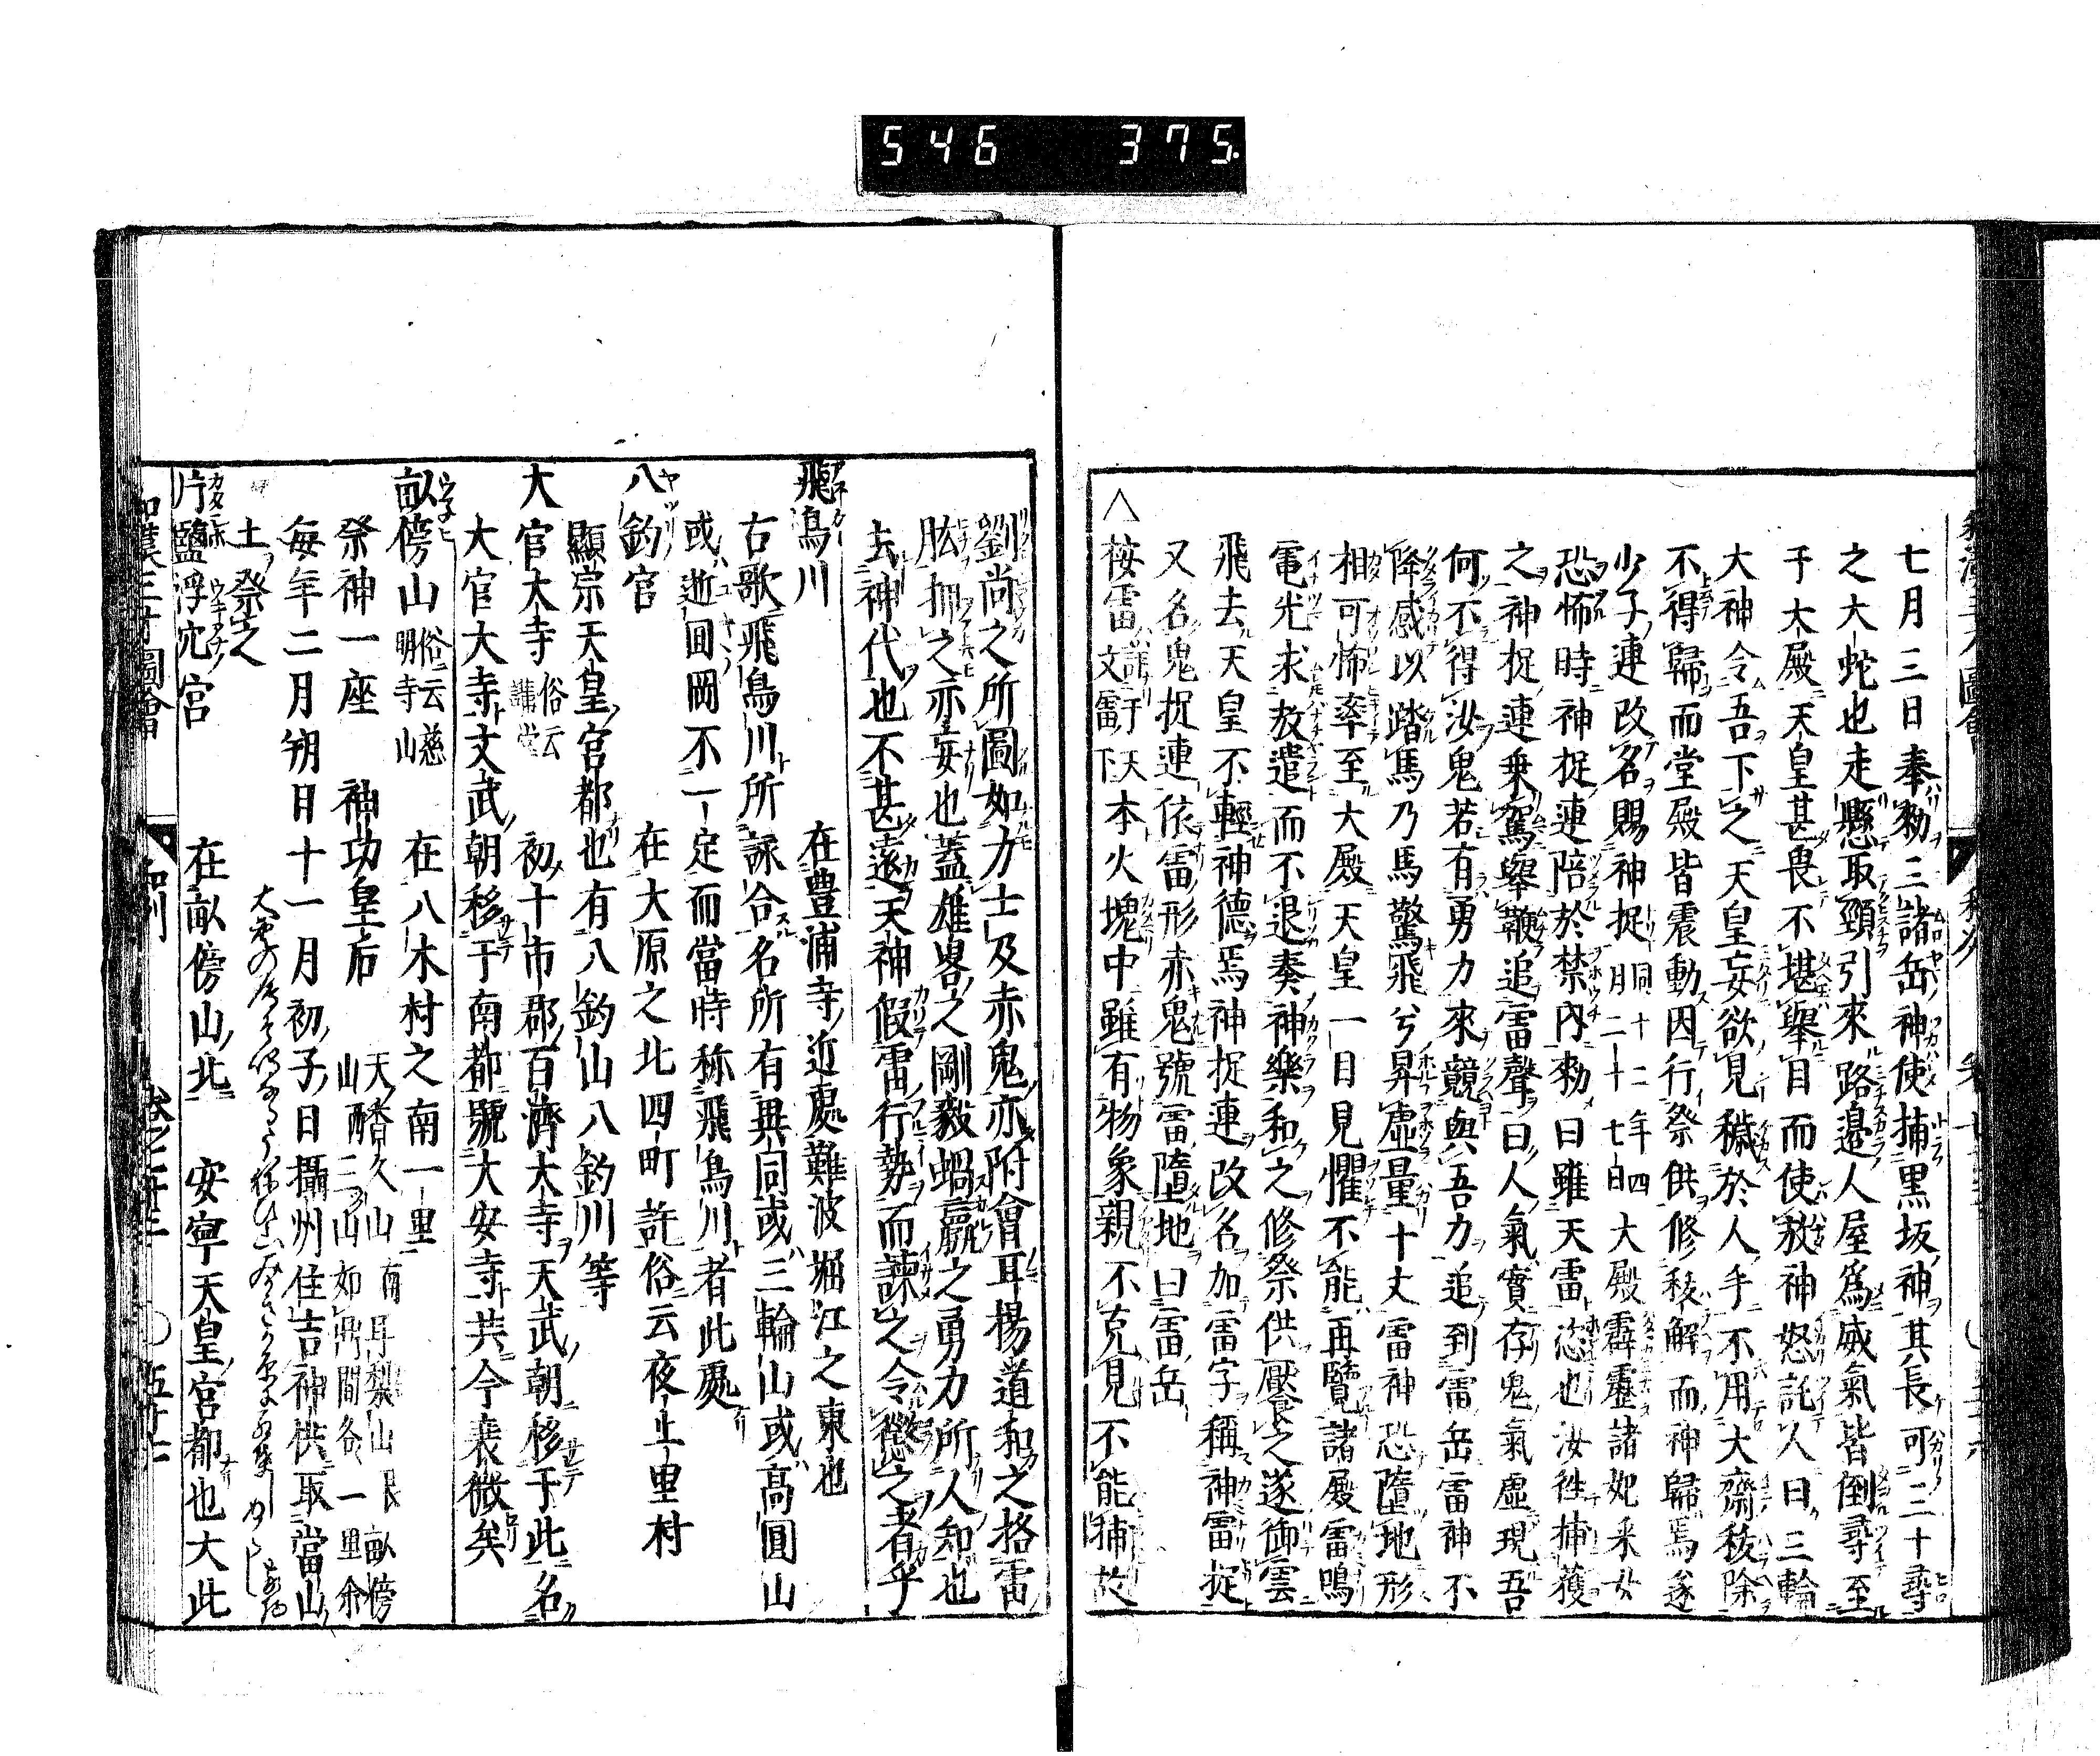 546 375.
七月三日奉勅三諸岳神使捕黒坂神其長可三十尋
之大蛇也走懸取頸引來路邉人屋爲威氣皆倒尋至
于大殿天皇甚畏不堪擧目而使赦神怒託人曰三輪
大神令吾下之天皇妄欲見穢於人手不用大齋秡除
不得歸而堂殿皆震動因行祭供修秡解而神歸焉遂
少子連改名賜神捉同十二年四月二十七日大殿霹靂諸妃釆女
恐怖時神捉連陪於禁内勅曰雖天雷恣也汝徃捕獲
之神捉連乗駕擧鞭追雷聲曰人氣實存鬼氣虛現吾
何不得汝鬼若有勇力來競與吾力追到雷岳雷神不
降感以踏馬乃馬驚飛兮昇虛量十丈雷神恐墮地形
相可怖率至大殿天皇一目見懼不能再覽諸殿雷鳴
電光求赦遣而不退奏神樂和之修祭供厭食之遂御雲
飛去天皇不輕神德焉神捉連改名加雷字稱神雷捉
又名鬼捉連依雷形赤鬼號雷墮地曰雷岳
△桉雷詳于天文雷下本火塊中雖有物象親不克見不能捕故
劉尚之所圖如力士及赤鬼亦附會耳楊道和之格雷
肱捫之亦妄也蓋雄畧之剛毅蜾蠃之勇力所人知也
去神代也不甚遠天神假雷行勢而諫之令懲之者乎
飛鳥川 在豊浦寺近處難波堀江之東也
右歌飛鳥川所詠合名所有異同或三輪山或髙圓山
或逝囬岡不一定而當時称飛鳥川者此處
八釣宮 在大原之北四町許俗云夜止里村
顯宗天皇宮都也有八釣山八釣川等
大官大寺俗云講堂 初十市郡百濟大寺天武朝移于此名
大官大寺文武朝移于南都號大安寺共今衰微矣
畝傍山俗云慈明寺山 在八木村之南一里
祭神一座 神功皇后 天香久山 南耳梨山 艮畝傍山 酉三山如鼎間各一里余
毎年二月朔日十一月初子日攝州住吉神供取當山
土祭之
片鹽浮穴宮 在畝傍山北 安寧天皇宮都也大此
和漢三才圖會 和州 卷之七十三 ○五十七